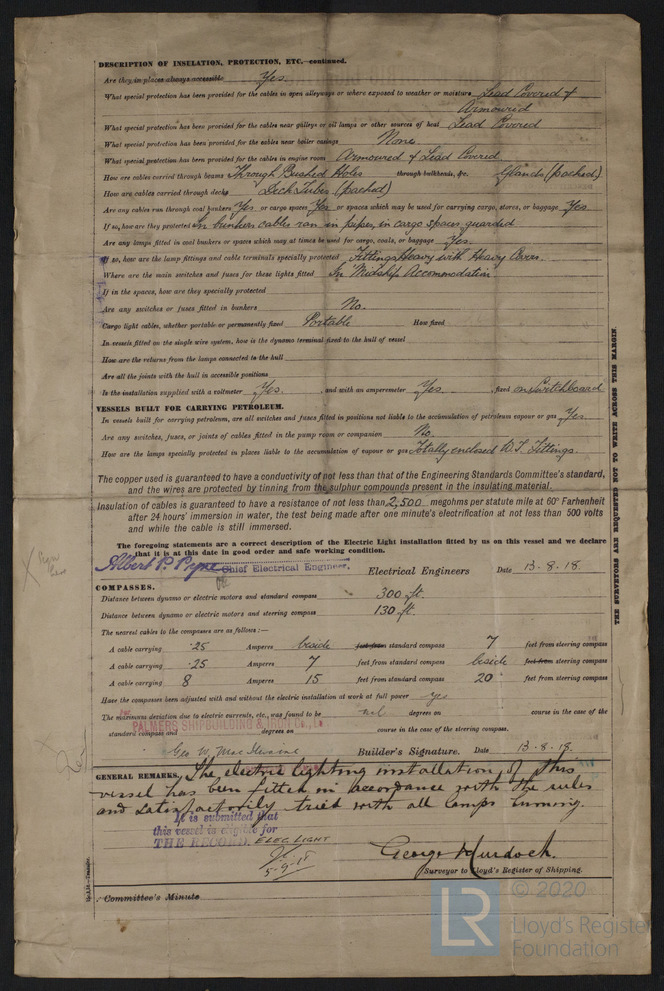 DESCRIPTION OF INSULATION, PROTECTION, ETC.—continued.
Are they, in places always accessible Yes
What special protection has been provided for the cables in open alleyways or where exposed to weather or moisture Lead Covered &
Armoured
What special protection has been provided for the cables near galleys or oil lamps or other sources of heat Lead Covered
What special protection has been provided for the cables near boiler casings None
What special protection has been provided for the cables in engine room Armoured & Lead Covered
How are cables carried through beams Through Bushed Holes through bulkheads, &c. Glands (packed)
How are cables carried through decks Deck Tubes (packed)
Are any cables run through coal bunkers Yes or cargo spaces Yes or spaces which may be used for carrying cargo, stores, or baggage Yes
If so, how are they protected In bunkers cables ran in pipes, in cargo spaces guarded
Are any lamps fitted in coal bunkers or spaces which may at times be used for cargo, coals, or baggage Yes.
If so, how are the lamp fittings and cable terminals specially protected Fittings Heavy with Heavy Covers.
Where are the main switches and fuses for these lights fitted In Midship Accommodation
If in the spaces, how are they specially protected
Are any switches or fuses fitted in bunkers No.
Cargo light cables, whether portable or permanently fixed Portable How fixed
In vessels fitted on the single wire system, how is the dynamo terminal fixed to the hull of vessel
How are the returns from the lamps connected to the hull
Are all the joints with the hull in accessible positions
Is the installation supplied with a voltmeter Yes. , and with an amperemeter Yes. , fixed on Switchboard
VESSELS BUILT FOR CARRYING PETROLEUM.
In vessels built for carrying petroleum, are all switches and fuses fitted in positions not liable to the accumulation of petroleum vapour or gas Yes.
Are any switches, fuses, or joints of cables fitted in the pump room or companion No.
How are the lamps specially protected in places liable to the accumulation of vapour or gas Totally enclosed W.T. Fittings.
The copper used is guaranteed to have a conductivity of not less than that of the Engineering Standards Committee's standard,
and the wires are protected by tinning from the sulphur compounds present in the insulating material.
Insulation of cables is guaranteed to have a resistance of not less than 2,500 megohms per statute mile at 60° Farhenheit
after 24 hours' immersion in water, the test being made after one minute's electrification at not less than 500 volts
and while the cable is still immersed.
The foregoing statements are a correct description of the Electric Light installation fitted by us on this vessel and we declare
that it is at this date in good order and safe working condition.
Albert P. Pyne Chief Electrical Engineer. Electrical Engineers Date 13-8-18.
COMPASSES.
Distance between dynamo or electric motors and standard compass 300 ft.
Distance between dynamo or electric motors and steering compass 130 ft.
The nearest cables to the compasses are as follows:—
A cable carrying .25 Amperes beside feet from standard compass 7 feet from steering compass
A cable carrying .25 Amperes 7 feet from standard compass beside feet from steering compass
A cable carrying 8 Amperes 15 feet from standard compass 20 feet from steering compass
Have the compasses been adjusted with and without the electric installation at work at full power yes
The maximum deviation due to electric currents, etc., was found to be nil degrees on course in the case of the
standard compass and degrees on course in the case of the steering compass.
PALMERS SHIPBUILDING & IRON CO., LD
Builder's Signature. Date 13-8-18.
GENERAL REMARKS. The electric lighting installation of this
vessel has been fitted in accordance with the rules
and satisfactorily tried with all lamps burning.
It is submitted that
this vessel is eligible for
THE RECORD. ELEC. LIGHT
5-9-18
George Murdoch.
Surveyor to Lloyd's Register of Shipping.
Committee's Minute
THE SURVEYORS ARE REQUESTED NOT TO WRITE ACROSS THIS MARGIN
LR
© 2020
Lloyd's Register
Foundation